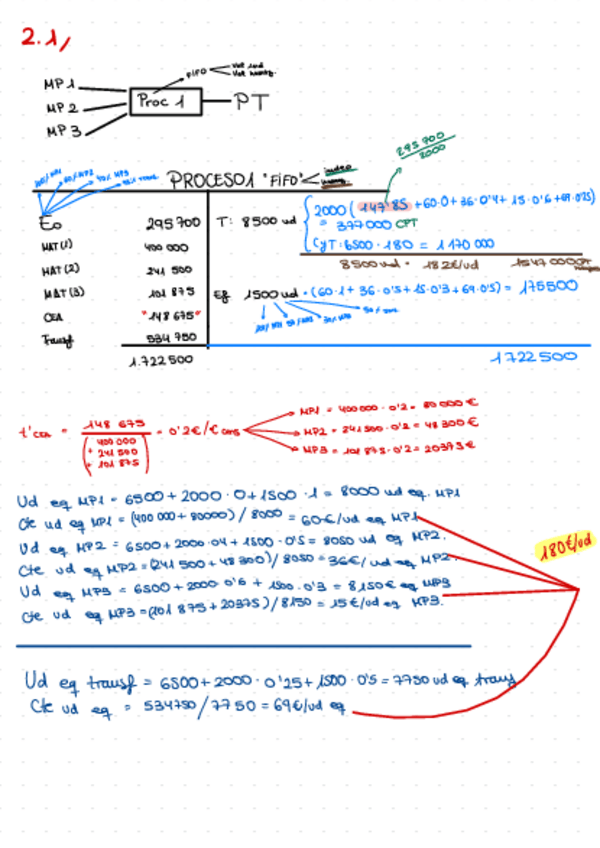 2.1,
FIFO
MP 1
MP 2
MP 3
Proc 1
PT
295 700
2000
PROCESO 1 "FIFO"
Eo 295 700
MAT (1) 400 000
MAT (2) 241 500
MAT (3) 101 875
CEA "148 675"
Transf 534 750
1.722 500
T: 8500 ud
2000 ( 147'85 + 60·0 + 36·0'4 + 15·0'6 + 69·0'25)
= 377 000 CPT
CyT: 6500 · 180 = 1 170 000
8500 ud · 182€/ud 1547 000
Ef 1500 ud · (60·1 + 36·0'5 + 15·0'3 + 69·0'5) = 175500
1722500
t'CEA = 148 675 / (400 000 + 241 500 + 101 875) = 0'2€/€ cons
MP1 = 400 000 · 0'2 = 80 000 €
MP2 = 241 500 · 0'2 = 48 300 €
MP3 = 101 875 · 0'2 = 20375 €
Ud eq MP1 = 6500 + 2000 · 0 + 1500 · 1 = 8000 ud eq. MP1
Cte ud eq MP1 = (400 000 + 80000) / 8000 = 60€/ud eq MP1
Ud eq MP2 = 6500 + 2000 · 04 + 1500 · 0'5 = 8050 ud eq MP2.
Cte ud eq MP2 = (241 500 + 48 300) / 8050 = 36€/ud eq MP2.
Ud eq MP3 = 6500 + 2000 · 0'6 + 1500 · 0'3 = 8150€ eq MP3
Cte ud eq MP3 = (101 875 + 20375) / 8150 = 15€/ud eq MP3.
180€/ud
Ud eq transf = 6500 + 2000 · 0'25 + 1500 · 0'5 = 7750 ud eq transf
Cte ud eq = 534750 / 7750 = 69€/ud eq